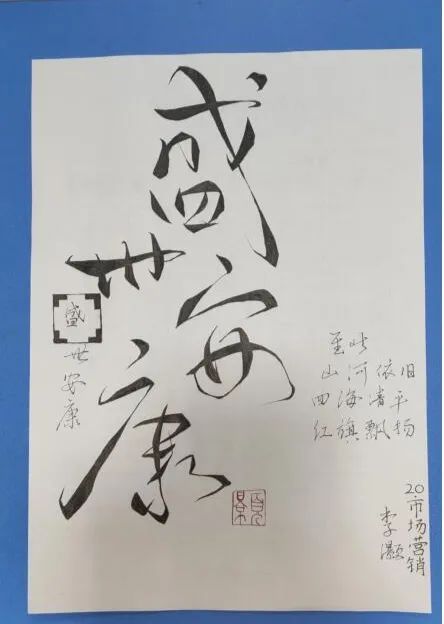 盛
世
安
康
盛
世安康
至此
山河依旧
四海清平
红旗飘扬
20市场营销
李灏